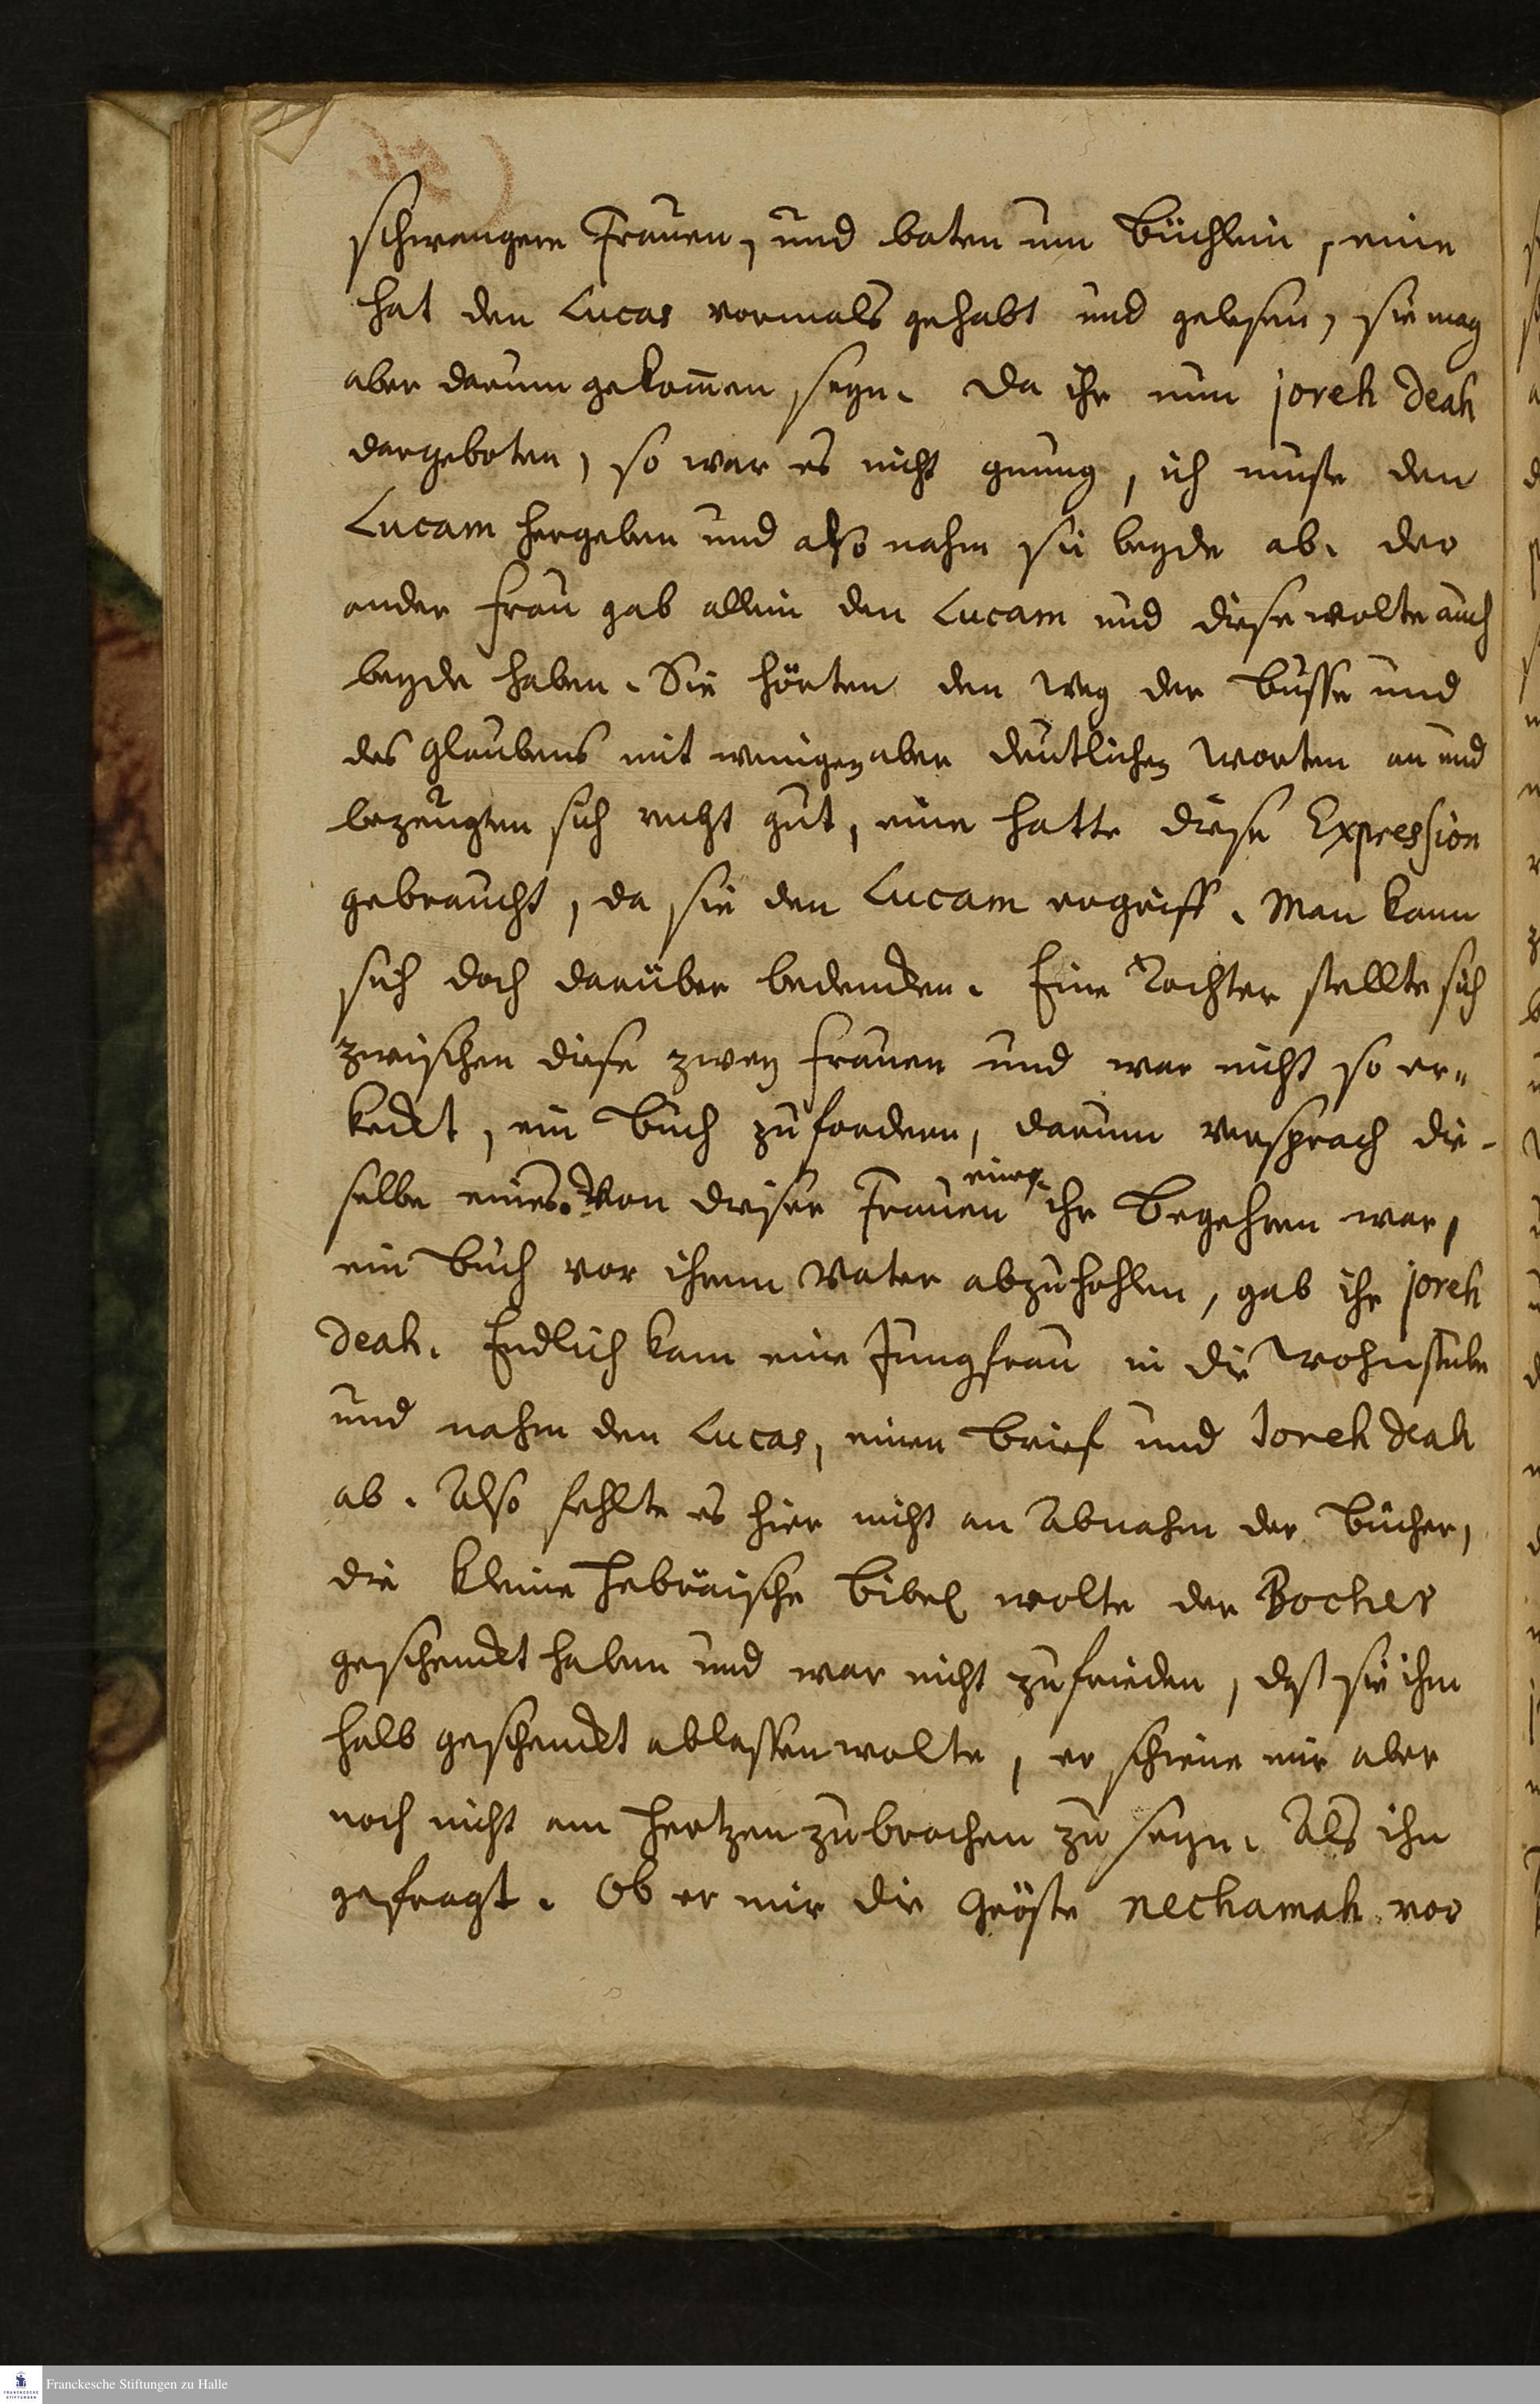 schwangere Frauen, und baten um Büchlein, eine
hat den Lucas vormals gehabt und gelesen, sie mag
aber darum gekom̅en seyn. Da ihr nun joreh deah
dargeboten, so war es nicht gnung, ich muste den
Lucam hergeben und also nahm sie beyde ab. der
ander Frau gab allein den Lucam und diese wolte auch
beyde haben. Sie hörten den Weg der Busse und
des Glaubens mit wenigen aber deutlichen Worten an und
bezeugten sich recht gut, eine hatte diese Expression
gebraucht, da sie den Lucam ergriff. Man kann
sich doch darüber bedencken. Eine Tochter stellte sich
zwischen diese zwey Frauen und war nicht so er-
keckt, ein Buch zu fordern, darum versprach die-
selbe eines. Von dieser Frauen einer ihr Begehren war,
ein Buch vor ihrem Vater abzuhohlen, gab ihr joreh
deah. Endlich kam eine Jungfrau in die Wohnstube
und nahm den Lucas, einen Brief und Joreh deah
ab. Also fehlte es hier nicht an Abnahm der Bücher,
die kleine Hebräische Bibel wolte der Bocher
geschenckt haben und war nicht zufrieden, daß sie ihm
halb geschenckt ablassen wolte, er schiene mir aber
noch nicht am Hertzen zubrochen zu seyn. Als ihn
gefragt. Ob er mir die Gröste nechamah vor
Franckesche Stiftungen zu Halle